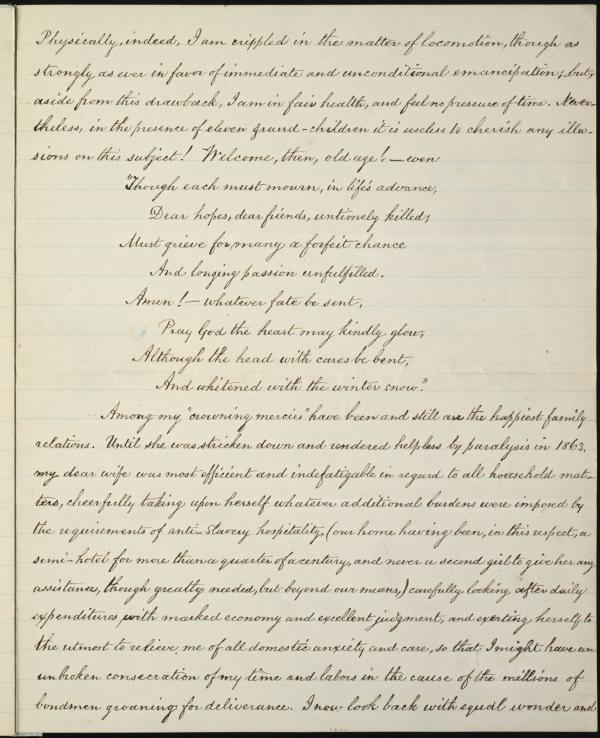 Physically, indeed, I am crippled in the matter of locomotion, though as
strongly as ever in favor of immediate and unconditional emancipation; but,
aside from this drawback, I am in fair health, and feel no pressure of time. Never-
theless, in the presence of eleven grand-children it is useless to cherish any illu-
sions on this subject! Welcome, then, old age! — even
"Though each must mourn, in life's advance,
Dear hopes, dear friends, untimely killed;
Must grieve for many a forfeit chance
And longing passion unfulfilled.
Amen! — whatever fate be sent,
Pray God the heart may kindly glow,
Although the head with cares be bent,
And whitened with the winter snow."
Among my "crowning mercies" have been and still are the happiest family
relations. Until she was stricken down and rendered helpless by paralysis in 1863,
my dear wife was most efficient and indefatigable in regard to all household mat-
ters, cheerfully taking upon herself whatever additional burdens were imposed by
the requirements of anti-Slavery hospitality, (our home having been, in this respect, a
semi-hotel for more than a quarter of a century, and never a second girl to give her any
assistance, though greatly needed, but beyond our means,) carefully looking after daily
expenditures with marked economy and excellent judgment, and exerting herself to
the utmost to relieve me of all domestic anxiety and care, so that I might have an
unbroken consecration of my time and labors in the cause of the millions of
bondmen groaning for deliverance. I now look back with equal wonder and